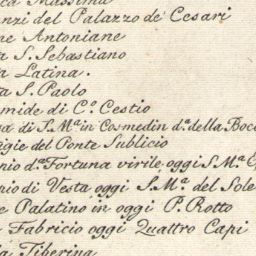 Massima
nzi del Palazzo de' Cesari
ne Antoniane
a S. Sebastiano
a Latina.
ta S. Paolo
mide di C.º Cestio
a di S. M.ª in Cosmedin d.ª della Boc
gie del Ponte Sublicio
nio d.ª Fortuna virile, oggi S. M.ª
pio di Vesta oggi S. M.ª del Sole
e Palatino in oggi P. Rotto
Fabricio oggi Quattro Capi
la Tiberina